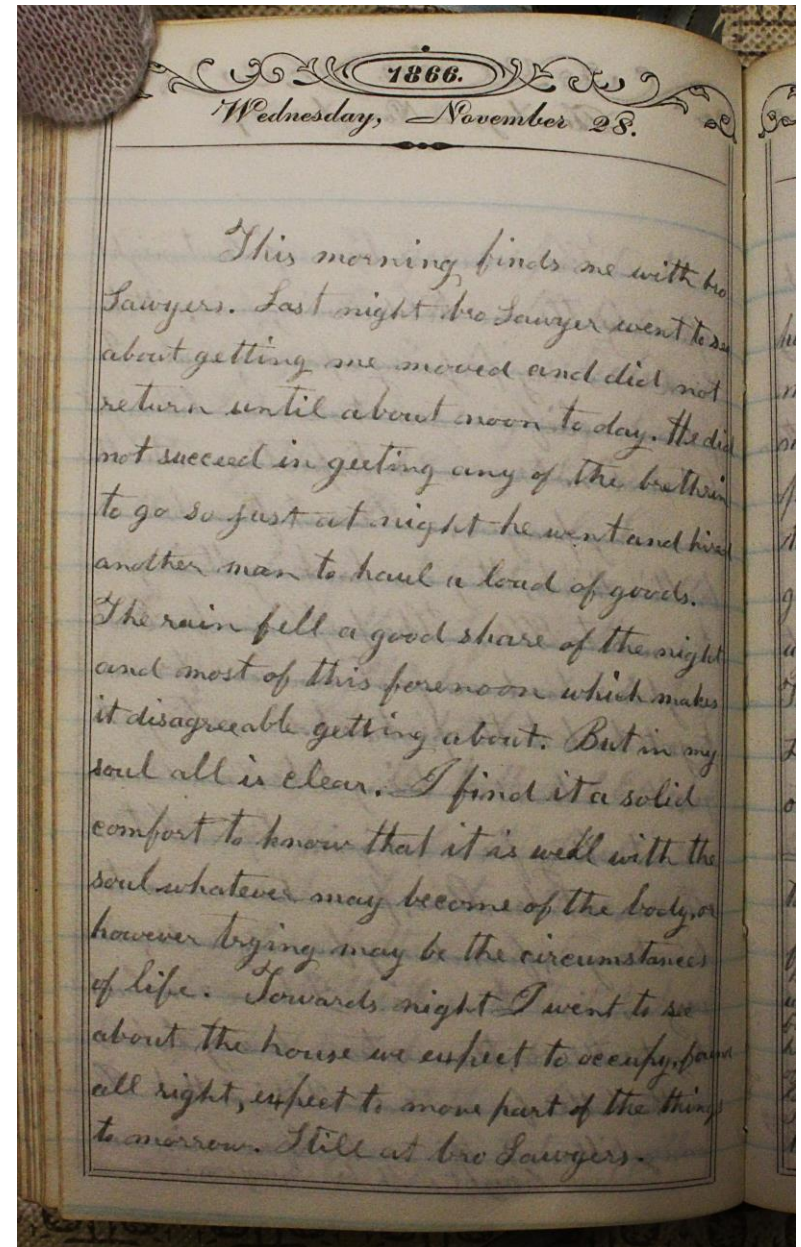 1866.
Wednesday, November 28.
This morning finds me with bro
Sawyers. Last night bro Sawyer went to see
about getting me moved and did not
return until about noon to day. He did
not succeed in geeting any of the brethrin
to go so just at night he went and hired
another man to haul a load of goods.
The rain fell a good share of the night
and most of this forenoon which makes
it disagreeable getting about. But in my
soul all is clear. I find it a solid
comfort to know that it is well with the
soul whatever may become of the body, or
however trying may be the circumstances
of life. Towards night I went to see
about the house we expect to occupy, found
all right, expect to move part of the things
to morrow. Still at bro Sawyers.